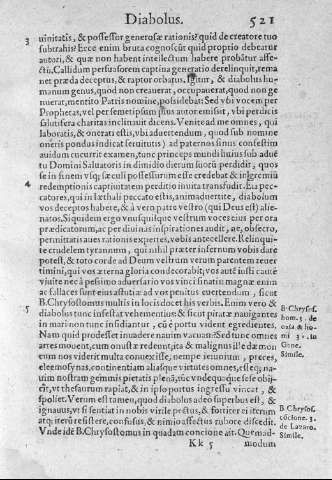 Diabolus. 521
3 uinitatis, & possessor generosæ rationis? quid de creatore tuo
subtrahis? Ecce enim bruta cognoscūt quid proptio debeātur
autori, & quæ non habent intellectum habere probātur affe-
cti. Callidum persuasorem captiua generatio derelinquit, rema
net præda deceptus, & raptor orbatus. Igitur, & diabolus hu-
manum genus, quod non creauerat, occupauerat, quod non ge
nuerat, mentito Patris nomine, possidebat: Sed vbi vocem per
Prophetas, vel per semetipsum pius autor emisit, vbi perditis
salutifera charitas inclinauit dicens. Venite ad me omnes, qui
laboratis, & onerati estis, vbi aduertendum, quod sub nomine
oneris pondus indicat seruitutis) ad paternos sinus confestim
auidum cucurrit examen, tunc princeps mundi huius sub adué
tu Domini Saluatoris in dimidio dierum suorū perdidit, quos
se in finem vsq; sæculi possessurum esse credebat & ingremiū
4 redemptionis captiuitatem perdito inuita transfudit. Eia pec-
catores, qui in læthali peccato estis, animaduertite, diabolum
vos deceptos habere, & à vero patre vestro (qui Deus est) alie-
natos. Si quidem ergo vnusquisque vestrum voces eius per ora
prædicatorum, ac per diuinas inspirationes audit, ne, obsecro,
permittatis aues rationis expertes, vobis antecellere. Relinqui-
te crudelem tyrannum, qui nihil præter infernum vobis dare
potest, & toto corde ad Deum vestrum verum parentem reuer
timini, qui vos æterna gloria condecorabit; vos autē iusti cautē
viuite nec à pessimo aduersario vos vinci sinatis magnæ enim
ac fallaces sunt eius astutiæ ad vos penitus euertendum, sicut
B. Chrysostomus multis in locis docet his verbis. Enim vero &
5 diabolus tunc infestat vehementius & sicut piratæ nauigantes
in mari non tunc insidiantur, cū è portu vident egredientes.
Nam quid prodesset inuadere nauim vacuam? Sed tunc omnes
artes mouent, cum onustæ redeunt, ita & malignus ille dæmon
cum nos viderit multa conuexisse, nempe ieiunium, preces,
eleemosynas, continentiam aliasque virtutes omnes, est eq; na-
uim nostram gemmis pietatis plenā, tūc vndequaque sese obij-
cit, vt thesaurum rapiat, & in ipso portus ingressu vincat, &
spoliet. Verum est tamen, quod diabolus adeo superbus est, &
ignauus, vt si sentiat in nobis virile pectus, & fortiter ei item
atq; iterū resistere, confusus, & nimio affectus rubore discedit.
Vnde idē B. Chrysostomus in quadam concione ait. Quemad-
Kk 5 modum
B Chrysos.
hom. 3. de
Gene.
Simile.
B Chrysos.
cōcione. 3.
de Lazaro.
Simile.